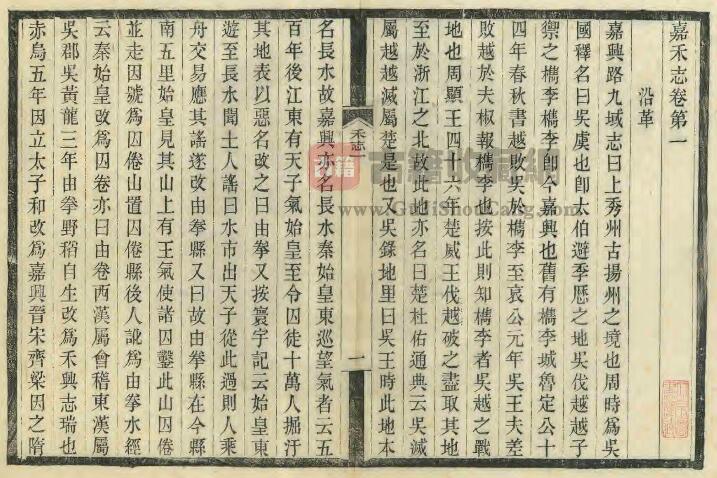 嘉禾志卷第一
沿革
嘉興路九域志曰上秀州古揚州之境也周時為吳
國釋名曰吳虞也卽太伯避季歷之地吳伐越越子
禦之檇李檇李卽今嘉興也舊有檇李城魯定公十
四年春秋書越敗吳於檇李至哀公元年吳王夫差
敗越於夫椒報檇李也按此則知檇李者吳越之戰
地也周顯王四十六年楚威王伐越破之盡取其地
至於浙江之北故此地亦名曰楚杜佑通典云吳滅
屬越越滅屬楚是也又吳錄地里曰吳王時此地本
禾志一
一
名長水故嘉興亦名長水秦始皇東巡望氣者云五
百年後江東有天子氣始皇至令囚徒十萬人掘汙
其地表以惡名改之曰由拳又按寰宇記云始皇東
遊至長水聞土人謠曰水市出天子從此過則人乘
舟交易應其謠遂改由拳縣又曰故由拳縣在今縣
南五里始皇見其山上有王氣使諸囚鑿此山囚倦
並走因號為囚倦山置囚倦縣後人訛為由拳水經
云秦始皇改為囚卷亦曰由卷西漢屬會稽東漢屬
吳郡吳黃龍三年由拳野稻自生改為禾興志瑞也
赤烏五年因立太子和改為嘉興晉宋齊梁因之隋
古籍收藏網
www.GuJiShouCang.com